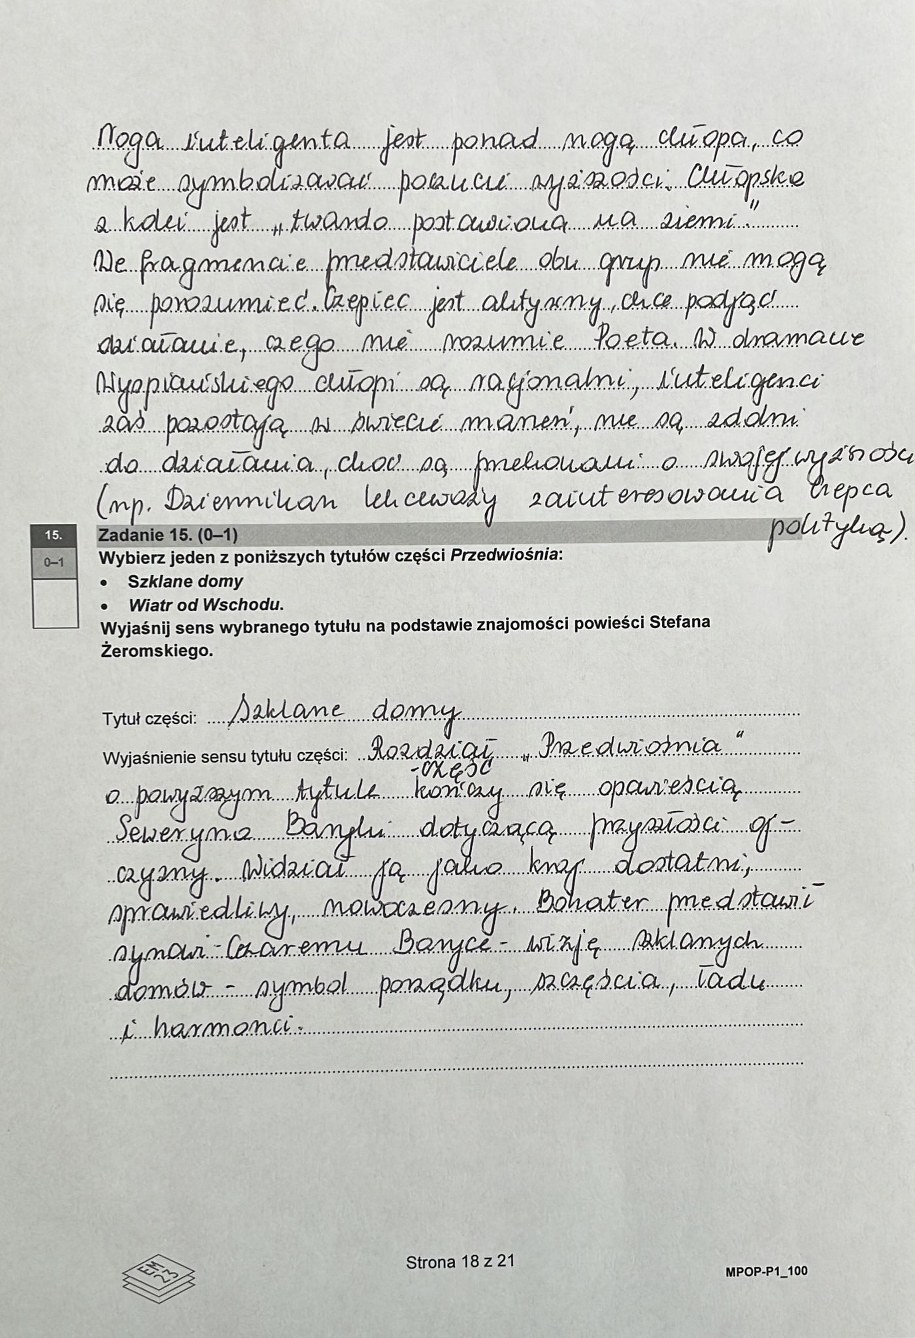 Noga inteligenta jest ponad nogą chłopa, co
może symbolizować poczucie wyższości. Chłopska
z kolei jest „twardo postawiona na ziemi."
We fragmencie przedstawiciele obu grup nie mogą
się porozumieć. Czepiec jest aktywny, chce podjąć
działanie, czego nie rozumie Poeta. W dramacie
Wyspiańskiego chłopi są racjonalni, inteligenci
zaś pozostają w świecie marzeń, nie są zdolni
do działania, choć są przekonani o swojej wyższości
(np. Dziennikarz lekceważy zainteresowania Czepca
polityką).
15.
Zadanie 15. (0–1)
0–1
Wybierz jeden z poniższych tytułów części Przedwiośnia:
• Szklane domy
• Wiatr od Wschodu.
Wyjaśnij sens wybranego tytułu na podstawie znajomości powieści Stefana
Żeromskiego.
Tytuł części: Szklane domy
Wyjaśnienie sensu tytułu części: Rozdział „Przedwiośnia"
-część
o powyższym tytule kończy się opowieścią
Seweryna Baryki dotyczącą przyszłości oj-
czyzny. Widział ją jako kraj dostatni,
sprawiedliwy, nowoczesny. Bohater przedstawił
synowi - Cezaremu Baryce - wizję szklanych
domów - symbol porządku, szczęścia, ładu
i harmonii.
EM
23
Strona 18 z 21
MPOP-P1_100